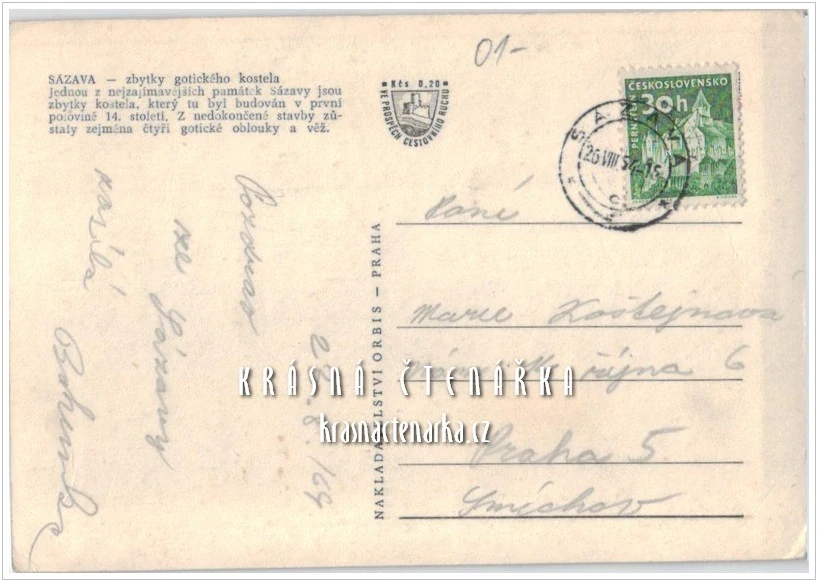 01-
SÁZAVA — zbytky gotického kostela
Jednou z nejzajímavějších památek Sázavy jsou
zbytky kostela, který tu byl budován v první
polovině 14. století. Z nedokončené stavby zů-
staly zejména čtyři gotické oblouky a věž.
Kčs 0,20
VE PROSPĚCH CESTOVNÍHO RUCHU
ČESKOSLOVENSKO
30h
PERNŠTEJN
SÁZAVA
26.VIII.
Pozdrav
ze Sázavy
posílá
Bohunka
/64
NAKLADATELSTVÍ ORBIS — PRAHA
Paní
Marie Koštejnová
6
Praha 5.
Smíchov
KRÁSNÁ ČTENÁŘKA
krasnactenarka.cz